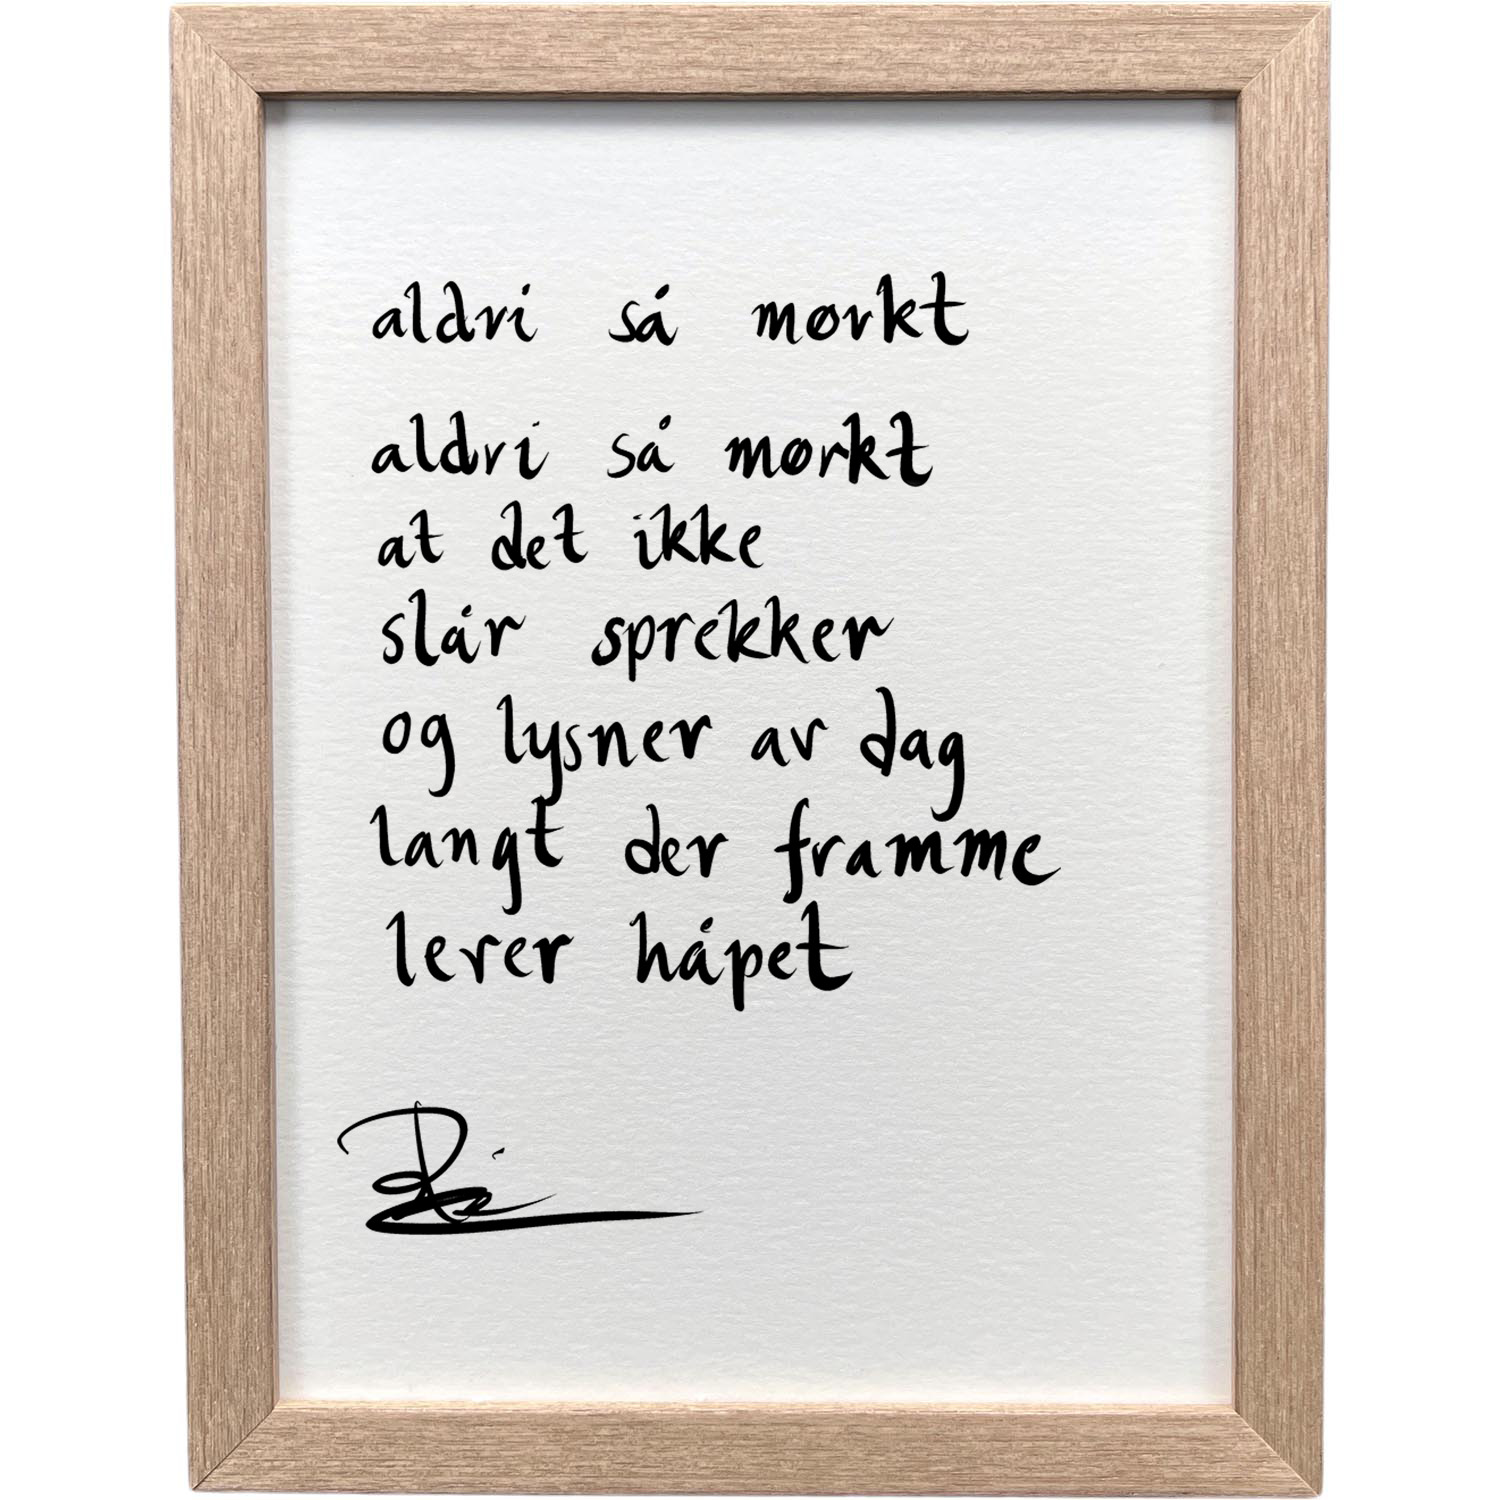 aldri så mørkt
aldri så mørkt
at det ikke
slår sprekker
og lysner av dag
langt der framme
lever håpet